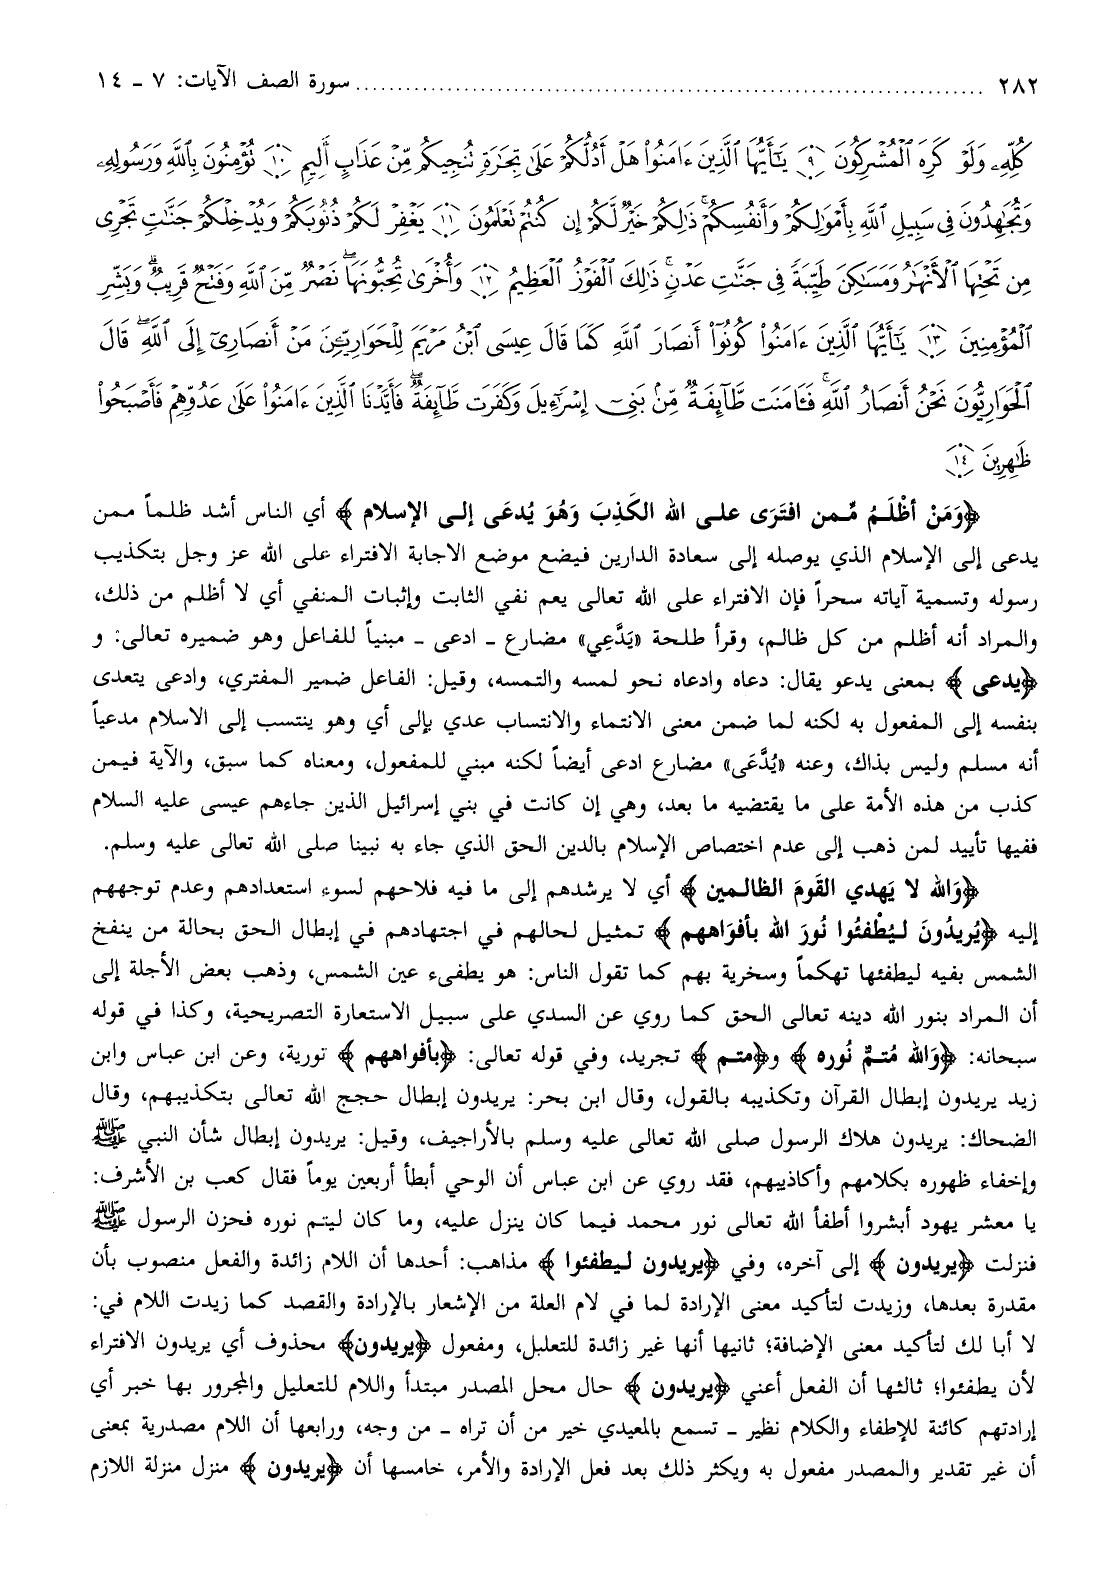 ٢٨٢ ................ سورة الصف الآيات: ٧ - ١٤
كُلِّهِۦ وَلَوْ كَرِهَ ٱلْمُشْرِكُونَ ٩ يَـٰٓأَيُّهَا ٱلَّذِينَ ءَامَنُوا۟ هَلْ أَدُلُّكُمْ عَلَىٰ تِجَـٰرَةٍ تُنجِيكُم مِّنْ عَذَابٍ أَلِيمٍ ١٠ تُؤْمِنُونَ بِٱللَّهِ وَرَسُولِهِۦ
وَتُجَـٰهِدُونَ فِى سَبِيلِ ٱللَّهِ بِأَمْوَٰلِكُمْ وَأَنفُسِكُمْ ۚ ذَٰلِكُمْ خَيْرٌ لَّكُمْ إِن كُنتُمْ تَعْلَمُونَ ١١ يَغْفِرْ لَكُمْ ذُنُوبَكُمْ وَيُدْخِلْكُمْ جَنَّـٰتٍ تَجْرِى
مِن تَحْتِهَا ٱلْأَنْهَـٰرُ وَمَسَـٰكِنَ طَيِّبَةً فِى جَنَّـٰتِ عَدْنٍ ۚ ذَٰلِكَ ٱلْفَوْزُ ٱلْعَظِيمُ ١٢ وَأُخْرَىٰ تُحِبُّونَهَا ۖ نَصْرٌ مِّنَ ٱللَّهِ وَفَتْحٌ قَرِيبٌ ۗ وَبَشِّرِ
ٱلْمُؤْمِنِينَ ١٣ يَـٰٓأَيُّهَا ٱلَّذِينَ ءَامَنُوا۟ كُونُوٓا۟ أَنصَارَ ٱللَّهِ كَمَا قَالَ عِيسَى ٱبْنُ مَرْيَمَ لِلْحَوَارِيِّـۧنَ مَنْ أَنصَارِىٓ إِلَى ٱللَّهِ ۖ قَالَ
ٱلْحَوَارِيُّونَ نَحْنُ أَنصَارُ ٱللَّهِ ۖ فَـَٔامَنَت طَّآئِفَةٌ مِّنۢ بَنِىٓ إِسْرَٰٓءِيلَ وَكَفَرَت طَّآئِفَةٌ ۖ فَأَيَّدْنَا ٱلَّذِينَ ءَامَنُوا۟ عَلَىٰ عَدُوِّهِمْ فَأَصْبَحُوا۟
ظَـٰهِرِينَ ١٤
﴿وَمَنْ أظْلَمُ مِّمن افتَرَى على الله الكَذِبَ وَهُوَ يُدعَى إلى الإسلام﴾ أي الناس أشد ظلماً ممن
يدعى إلى الإسلام الذي يوصله إلى سعادة الدارين فيضع موضع الاجابة الافتراء على الله عز وجل بتكذيب
رسوله وتسمية آياته سحراً فإن الافتراء على الله تعالى يعم نفي الثابت وإثبات المنفي أي لا أظلم من ذلك،
والمراد أنه أظلم من كل ظالم، وقرأ طلحة «يَدَّعِي» مضارع - ادعى - مبنياً للفاعل وهو ضميره تعالى: و
﴿يدعى﴾ بمعنى يدعو يقال: دعاه وادعاه نحو لمسه والتمسه، وقيل: الفاعل ضمير المفتري، وادعى يتعدى
بنفسه إلى المفعول به لكنه لما ضمن معنى الانتماء والانتساب عدي بإلى أي وهو ينتسب إلى الاسلام مدعياً
أنه مسلم وليس بذاك، وعنه «يُدَّعَى» مضارع ادعى أيضاً لكنه مبني للمفعول، ومعناه كما سبق، والآية فيمن
كذب من هذه الأمة على ما يقتضيه ما بعد، وهي إن كانت في بني إسرائيل الذين جاءهم عيسى عليه السلام
ففيها تأييد لمن ذهب إلى عدم اختصاص الإسلام بالدين الحق الذي جاء به نبينا صلى الله تعالى عليه وسلم.
﴿وَالله لا يَهدي القَومَ الظالمين﴾ أي لا يرشدهم إلى ما فيه فلاحهم لسوء استعدادهم وعدم توجههم
إليه ﴿يُريدُونَ ليُطْفئُوا نُورَ الله بأفوَاههم﴾ تمثيل لحالهم في اجتهادهم في إبطال الحق بحالة من ينفخ
الشمس بفيه ليطفئها تهكماً وسخرية بهم كما تقول الناس: هو يطفىء عين الشمس، وذهب بعض الأجلة إلى
أن المراد بنور الله دينه تعالى الحق كما روي عن السدي على سبيل الاستعارة التصريحية، وكذا في قوله
سبحانه: ﴿وَالله مُتمٌّ نُوره﴾ و﴿متم﴾ تجريد، وفي قوله تعالى: ﴿بأفواههم﴾ تورية، وعن ابن عباس وابن
زيد يريدون إبطال القرآن وتكذيبه بالقول، وقال ابن بحر: يريدون إبطال حجج الله تعالى بتكذيبهم، وقال
الضحاك: يريدون هلاك الرسول صلى الله تعالى عليه وسلم بالأراجيف، وقيل: يريدون إبطال شأن النبي ﷺ
وإخفاء ظهوره بكلامهم وأكاذيبهم، فقد روي عن ابن عباس أن الوحي أبطأ أربعين يوماً فقال كعب بن الأشرف:
يا معشر يهود أبشروا أطفأ الله تعالى نور محمد فيما كان ينزل عليه، وما كان ليتم نوره فحزن الرسول ﷺ
فنزلت ﴿يريدون﴾ إلى آخره، وفي ﴿يريدون ليطفئوا﴾ مذاهب: أحدها أن اللام زائدة والفعل منصوب بأن
مقدرة بعدها، وزيدت لتأكيد معنى الإرادة لما في لام العلة من الإشعار بالإرادة والقصد كما زيدت اللام في:
لا أبا لك لتأكيد معنى الإضافة؛ ثانيها أنها غير زائدة للتعليل، ومفعول ﴿يريدون﴾ محذوف أي يريدون الافتراء
لأن يطفئوا؛ ثالثها أن الفعل أعني ﴿يريدون﴾ حال محل المصدر مبتدأ واللام للتعليل والمجرور بها خبر أي
إرادتهم كائنة للإطفاء والكلام نظير - تسمع بالمعيدي خير من أن تراه - من وجه، ورابعها أن اللام مصدرية بمعنى
أن غير تقدير والمصدر مفعول به ويكثر ذلك بعد فعل الإرادة والأمر، خامسها أن ﴿يريدون﴾ منزل منزلة اللازم